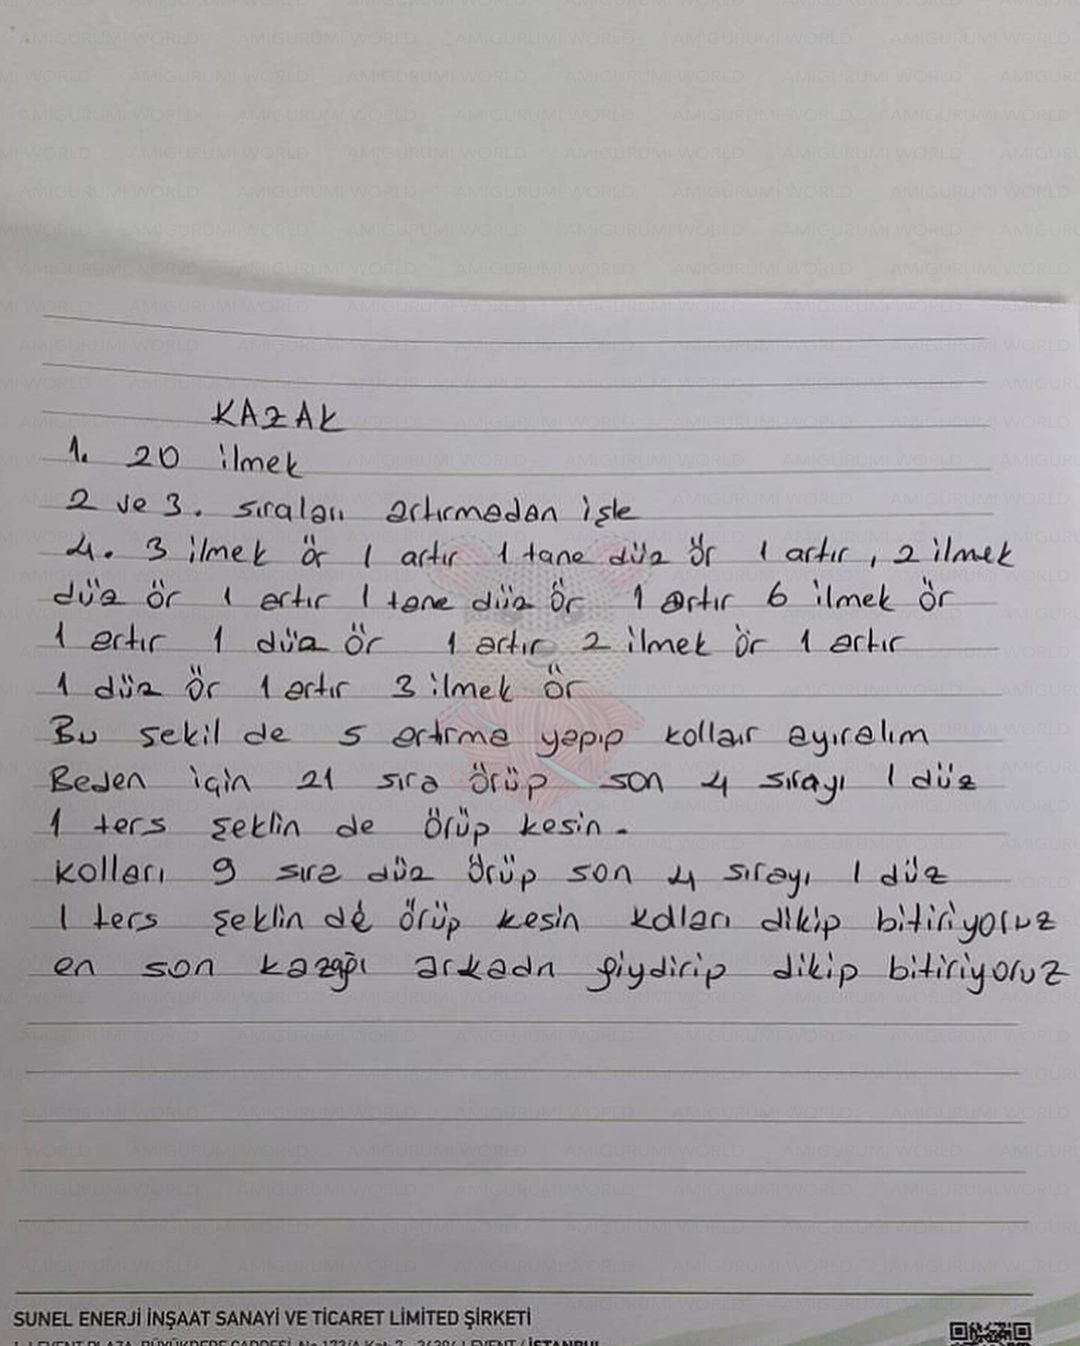 KAZAK
1. 20 ilmek
2 ve 3. sıraları artırmadan işle
4. 3 ilmek ör 1 artır 1 tane düz ör 1 artır, 2 ilmek
düz ör 1 artır 1 tane düz ör 1 artır 6 ilmek ör
1 artır 1 düz ör 1 artır 2 ilmek ör 1 artır
1 düz ör 1 artır 3 ilmek ör
Bu şekil de 5 artırma yapıp kolları ayıralım
Beden için 21 sıra örüp son 4 sırayı 1 düz
1 ters şeklin de örüp kesin.
kolları 9 sıra düz örüp son 4 sırayı 1 düz
1 ters şeklin de örüp kesin kolları dikip bitiriyoruz
en son kazağı arkadn giydirip dikip bitiriyoruz
SUNEL ENERJİ İNŞAAT SANAYİ VE TİCARET LİMİTED ŞİRKETİ
AMIGURUMI WORLD